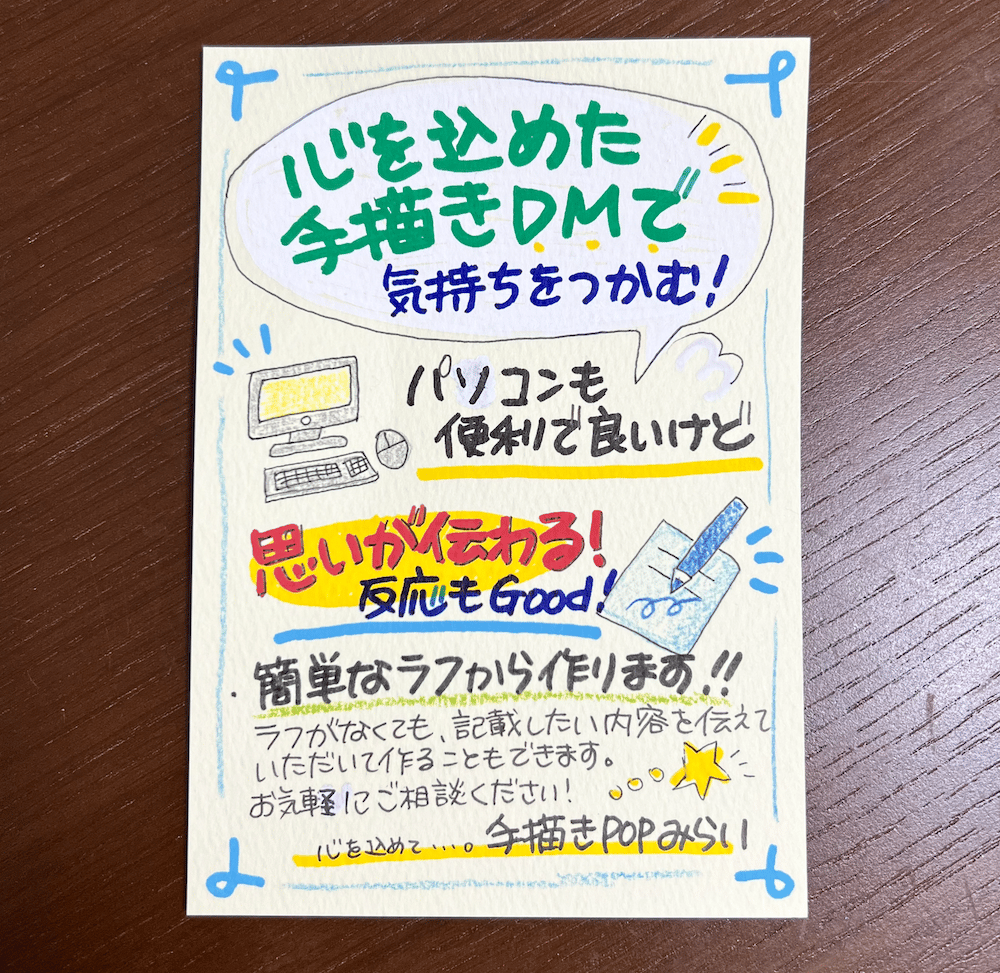 心を込めた
手描きDMで
気持ちをつかむ!
パソコンも
便利で良いけど
思いが伝わる!
反応もGood!
簡単なラフから作ります!!
ラフがなくても、記載したい内容を伝えて
いただいて作ることもできます。
お気軽にご相談ください!
心を込めて...。手描きPOPみらい